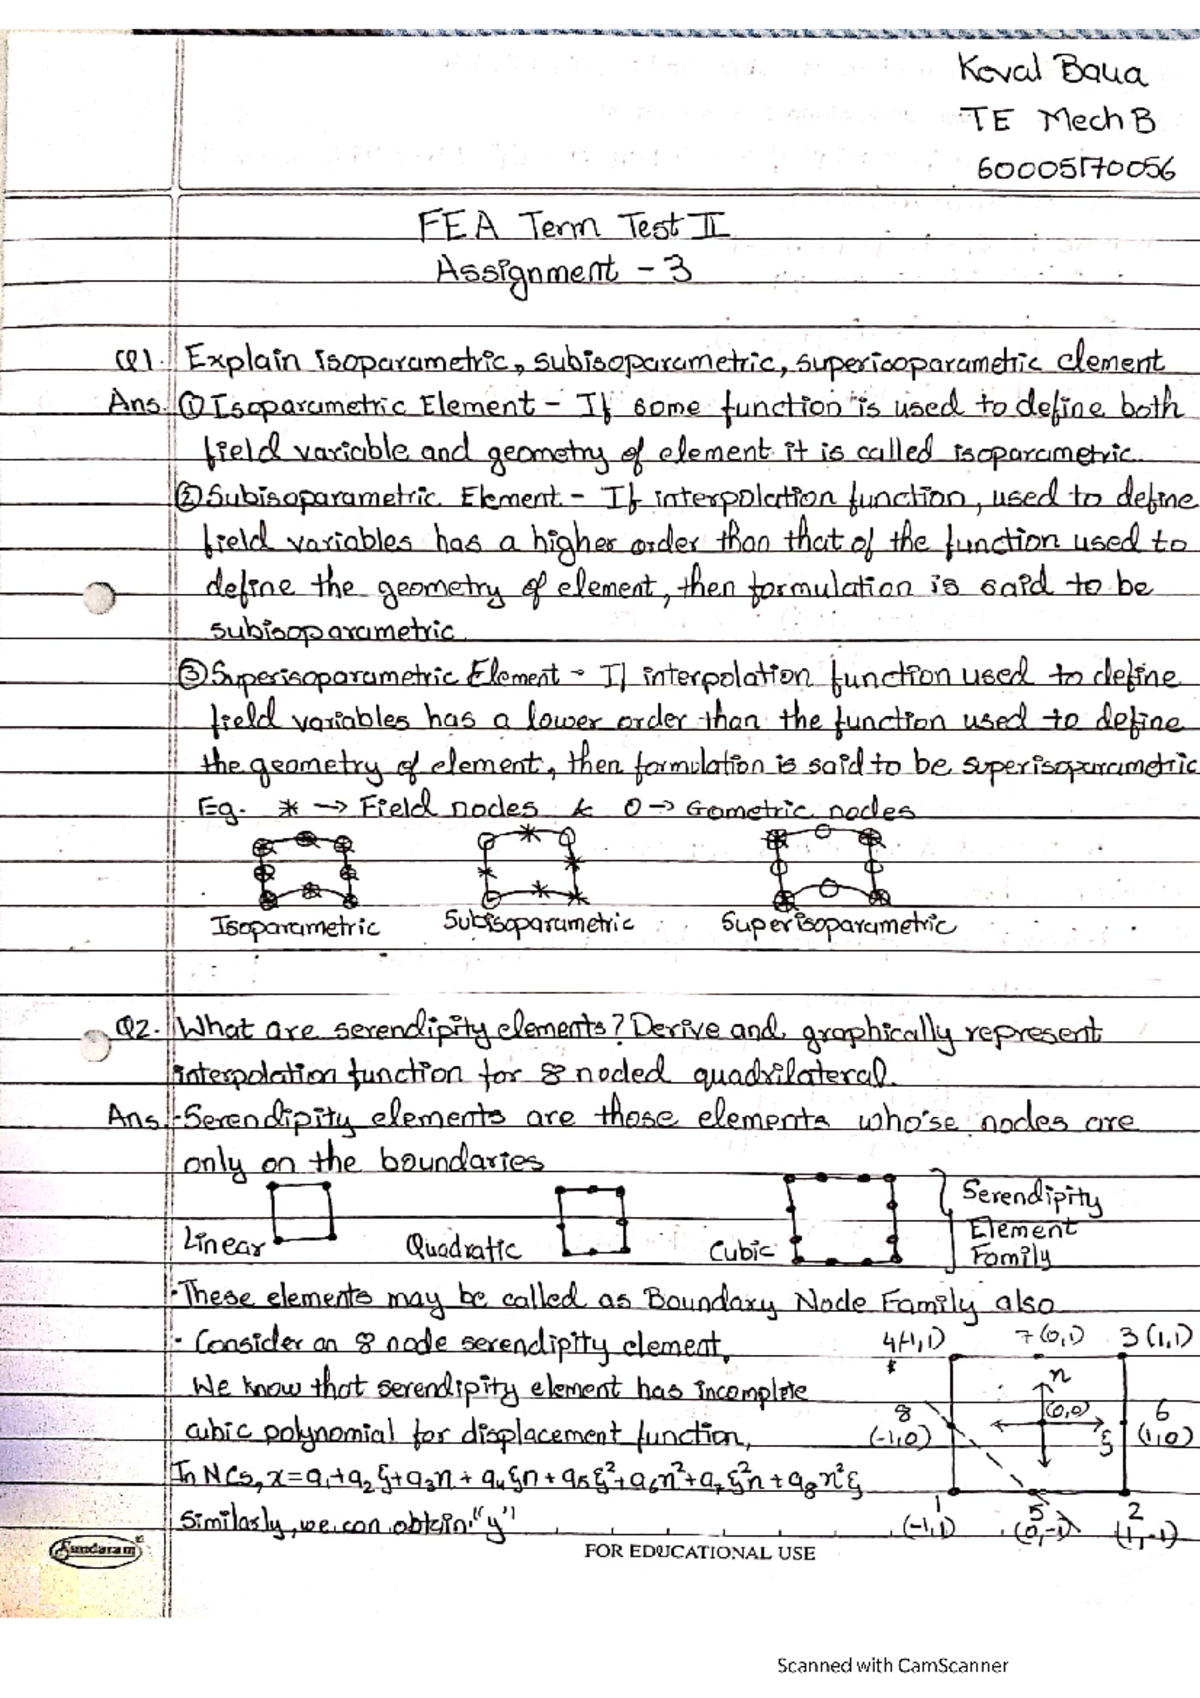 Keval Baua
TE Mech B
60005170056
FEA Term Test II
Assignment - 3
Q1. Explain isoparametric, subisoparametric, superisoparametric element
Ans. ① Isoparametric Element - If some function is used to define both
field variable and geometry of element it is called isoparametric.
② Subisoparametric Element - If interpolation function, used to define
field variables has a higher order than that of the function used to
define the geometry of element, then formulation is said to be
subisoparametric
③ Superisoparametric Element - If interpolation function used to define
field variables has a lower order than the function used to define
the geometry of element, then formulation is said to be superisoparametric
Eg. * → Field nodes & O → Gometric nodes
Isoparametric Subisoparametric Superisoparametric
Q2. What are serendipity elements? Derive and graphically represent
interpolation function for 8 noded quadrilateral.
Ans. - Serendipity elements are those elements who's'e nodes are
only on the boundaries
Linear Quadratic Cubic Serendipity
Element
Family
· These elements may be called as Boundary Node Family also
· Consider an 8 node serendipity element,
4(-1,1) 7(0,1) 3(1,1)
We know that serendipity element has incomplete
η
8 (0,0) 6
cubic polynomial for displacement function,
(-1,0) ξ (1,0)
In NCs, x = a₁+a₂ξ+a₃η + a₄ξη + a₅ξ²+a₆η²+a₇ξ²η + a₈η²ξ
Similarly, we can obtain "y"
1 5 2
(-1,1) (0,-1) (1,-1)
Sundaram
FOR EDUCATIONAL USE
Scanned with CamScanner